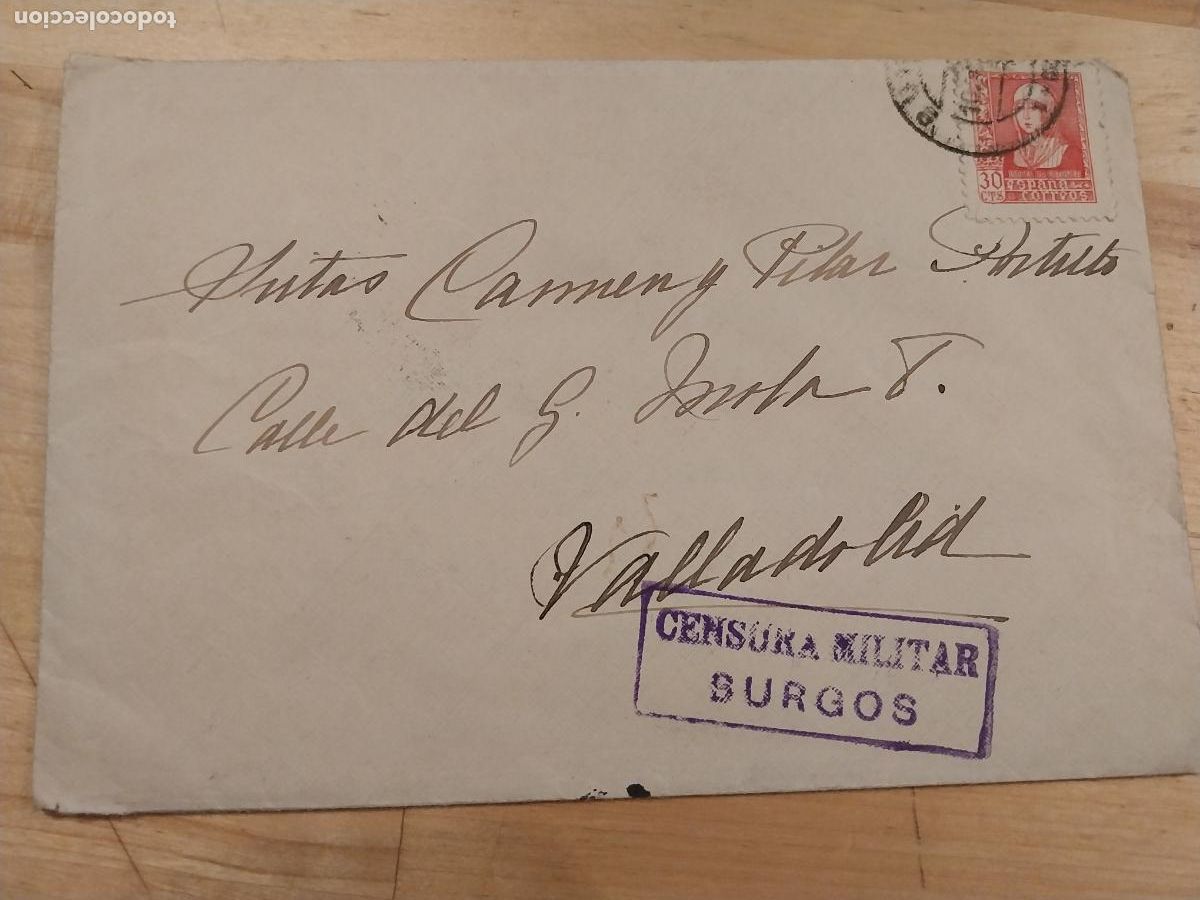 todocoleccion
30
CTS
España
correos
Sritas Carmen y Pilar
Calle del G. Mola 8.
Valladolid
CENSURA MILITAR
BURGOS